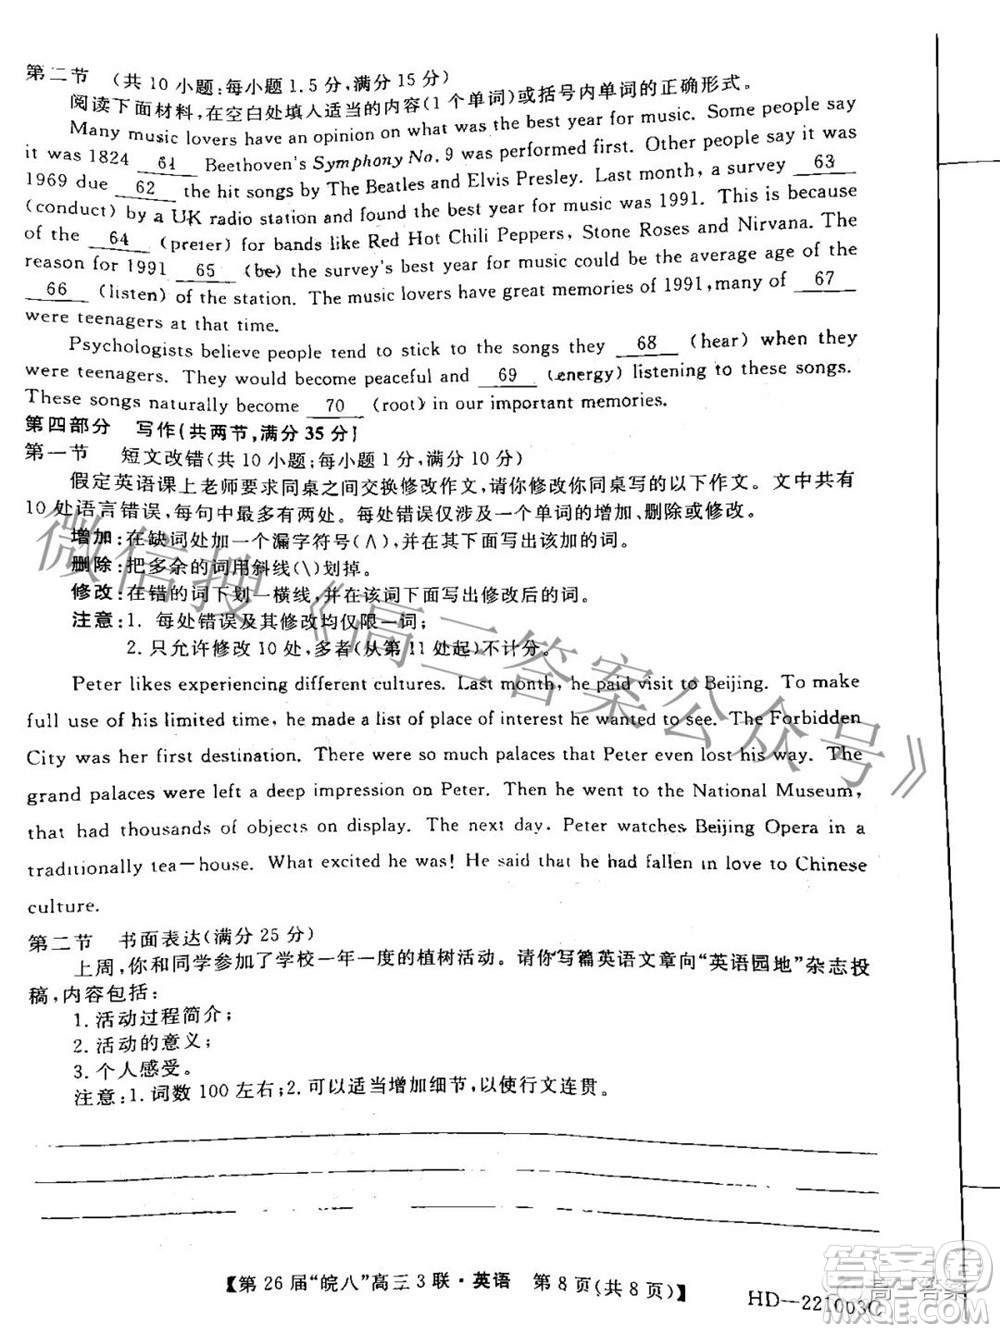 第二节 (共 10 小题;每小题 1.5 分,满分 15 分)
阅读下面材料,在空白处填入适当的内容(1 个单词)或括号内单词的正确形式。
Many music lovers have an opinion on what was the best year for music. Some people say
it was 1824 61 Beethoven's Symphony No. 9 was performed first. Other people say it was
1969 due 62 the hit songs by The Beatles and Elvis Presley. Last month, a survey 63
(conduct) by a UK radio station and found the best year for music was 1991. This is because
of the 64 (prefer) for bands like Red Hot Chili Peppers, Stone Roses and Nirvana. The
reason for 1991 65 (be) the survey's best year for music could be the average age of the
66 (listen) of the station. The music lovers have great memories of 1991, many of 67
were teenagers at that time.
Psychologists believe people tend to stick to the songs they 68 (hear) when they
were teenagers. They would become peaceful and 69 (energy) listening to these songs.
These songs naturally become 70 (root) in our important memories.
第四部分 写作(共两节,满分 35 分)
第一节 短文改错(共 10 小题;每小题 1 分,满分 10 分)
假定英语课上老师要求同桌之间交换修改作文,请你修改你同桌写的以下作文。文中共有
10 处语言错误,每句中最多有两处。每处错误仅涉及一个单词的增加、删除或修改。
增加:在缺词处加一个漏字符号(∧),并在其下面写出该加的词。
删除:把多余的词用斜线(\)划掉。
修改:在错的词下划一横线,并在该词下面写出修改后的词。
注意:1. 每处错误及其修改均仅限一词;
2. 只允许修改 10 处,多者(从第 11 处起)不计分。
Peter likes experiencing different cultures. Last month, he paid visit to Beijing. To make
full use of his limited time, he made a list of place of interest he wanted to see. The Forbidden
City was her first destination. There were so much palaces that Peter even lost his way. The
grand palaces were left a deep impression on Peter. Then he went to the National Museum,
that had thousands of objects on display. The next day, Peter watches Beijing Opera in a
traditionally tea—house. What excited he was! He said that he had fallen in love to Chinese
culture.
第二节 书面表达(满分 25 分)
上周,你和同学参加了学校一年一度的植树活动。请你写篇英语文章向“英语园地”杂志投
稿,内容包括:
1. 活动过程简介;
2. 活动的意义;
3. 个人感受。
注意:1. 词数 100 左右;2. 可以适当增加细节,以使行文连贯。
【第 26 届“皖八”高三 3 联·英语 第 8 页(共 8 页)】
HD—221003C
微信搜《高三答案公众号》
高三答案
MXQE.COM